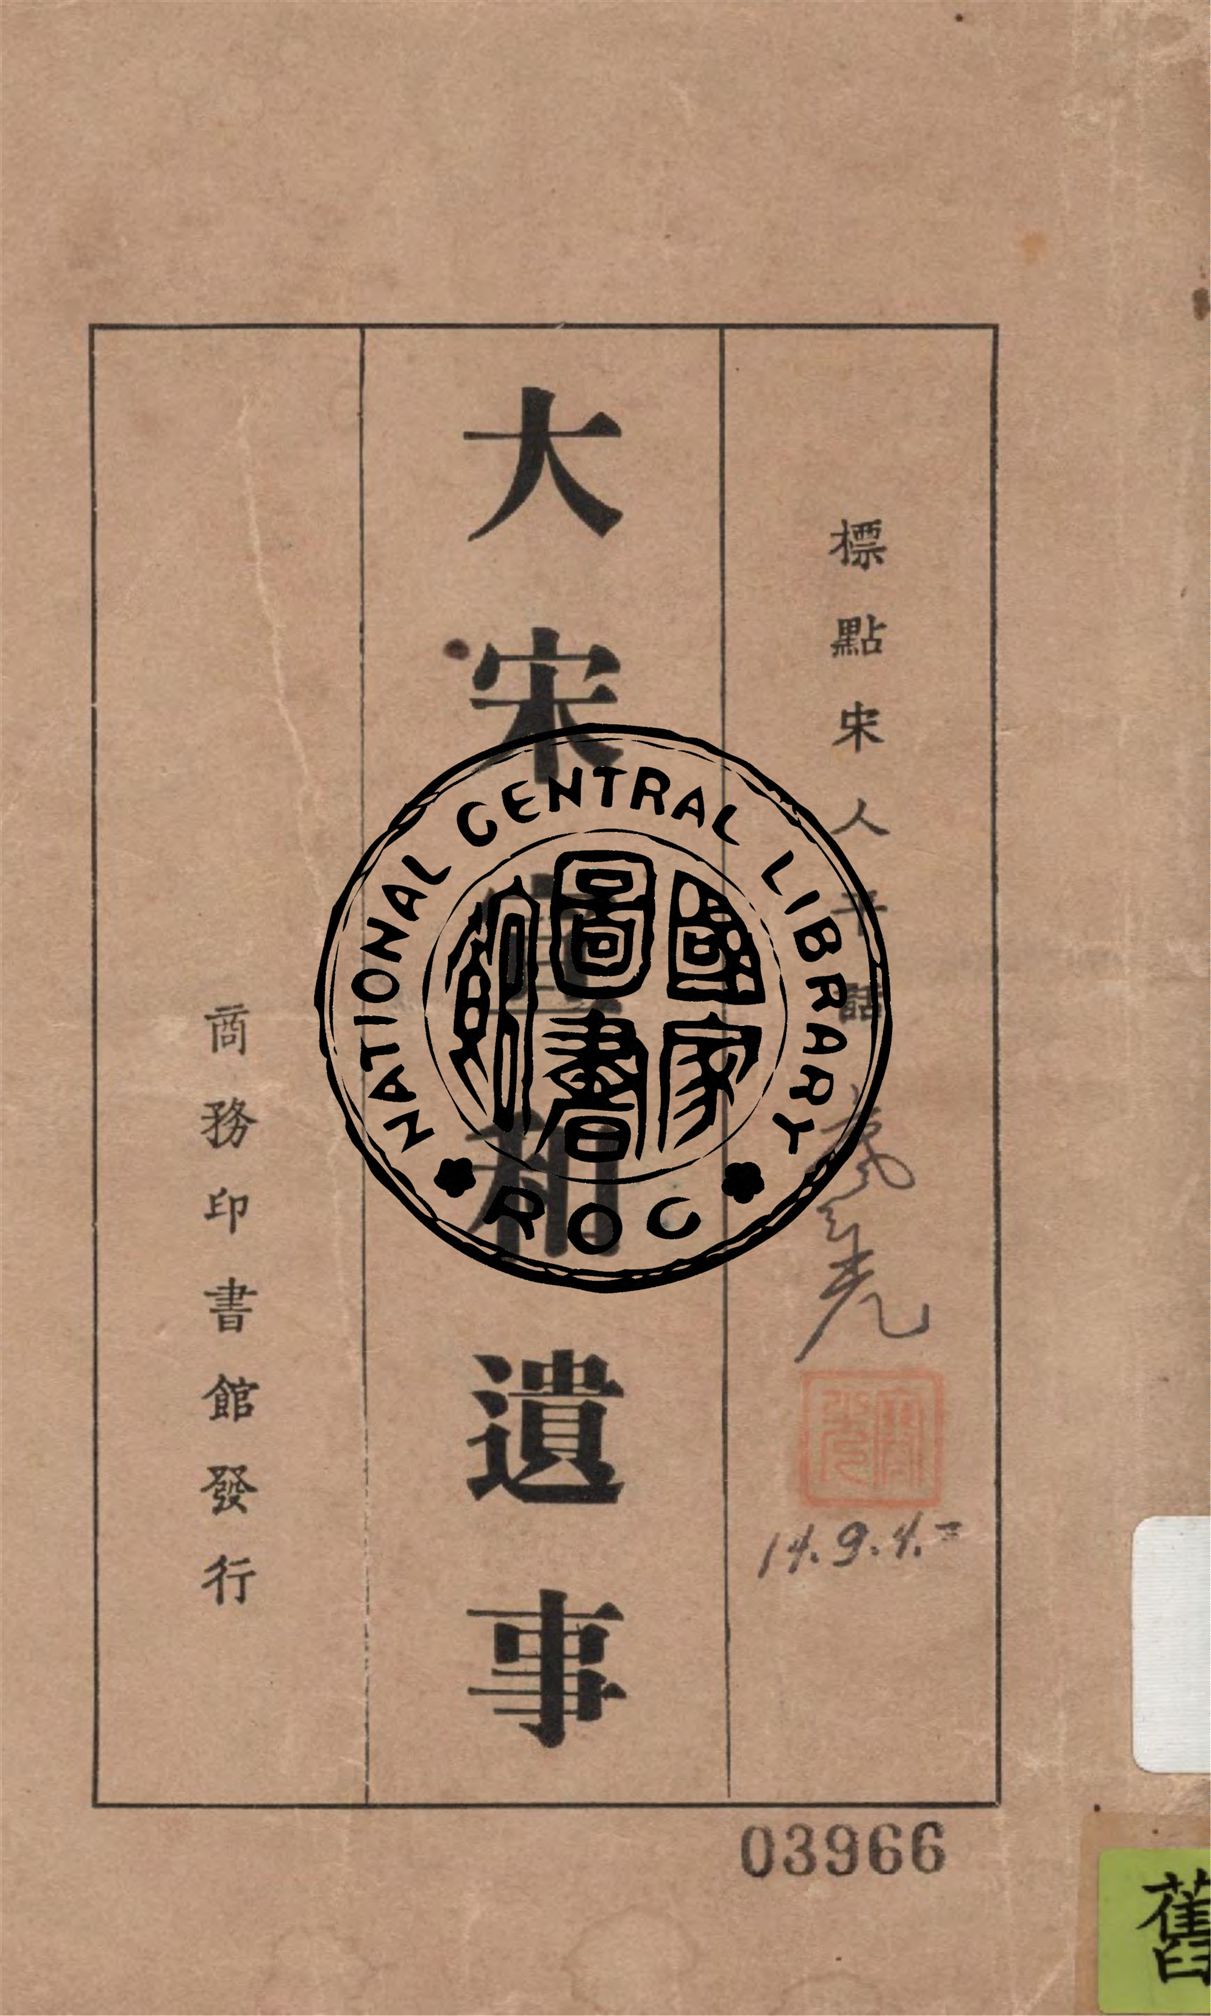 標點宋人平話
大宋宣和遺事
商務印書館發行
NATIONAL CENTRAL LIBRARY
國家圖書館
ROC
14.9.4.
03966
舊